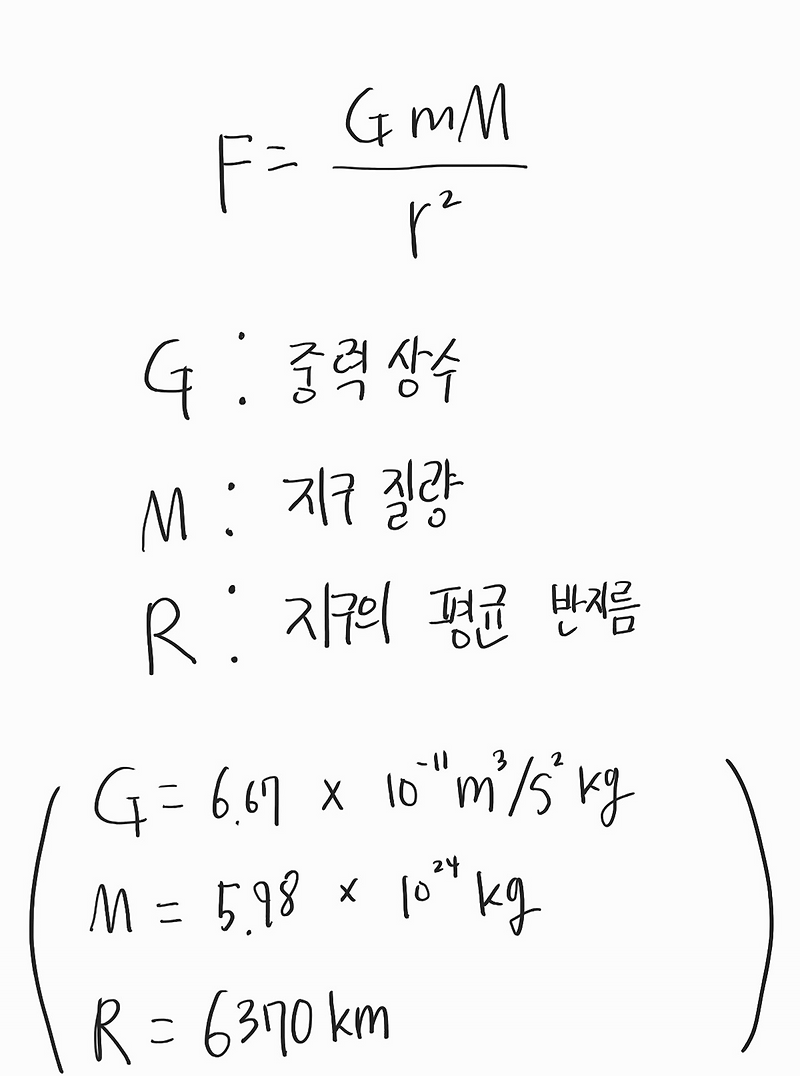 F = GmM / r²
G : 중력 상수
M : 지구 질량
R : 지구의 평균 반지름
G = 6.67 × 10⁻¹¹ m³/s² kg
M = 5.98 × 10²⁴ kg
R = 6370 km